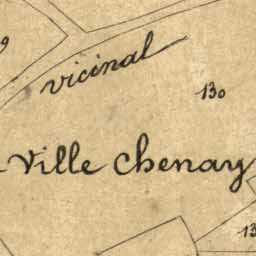 vicinal
130
Ville Chenay
13